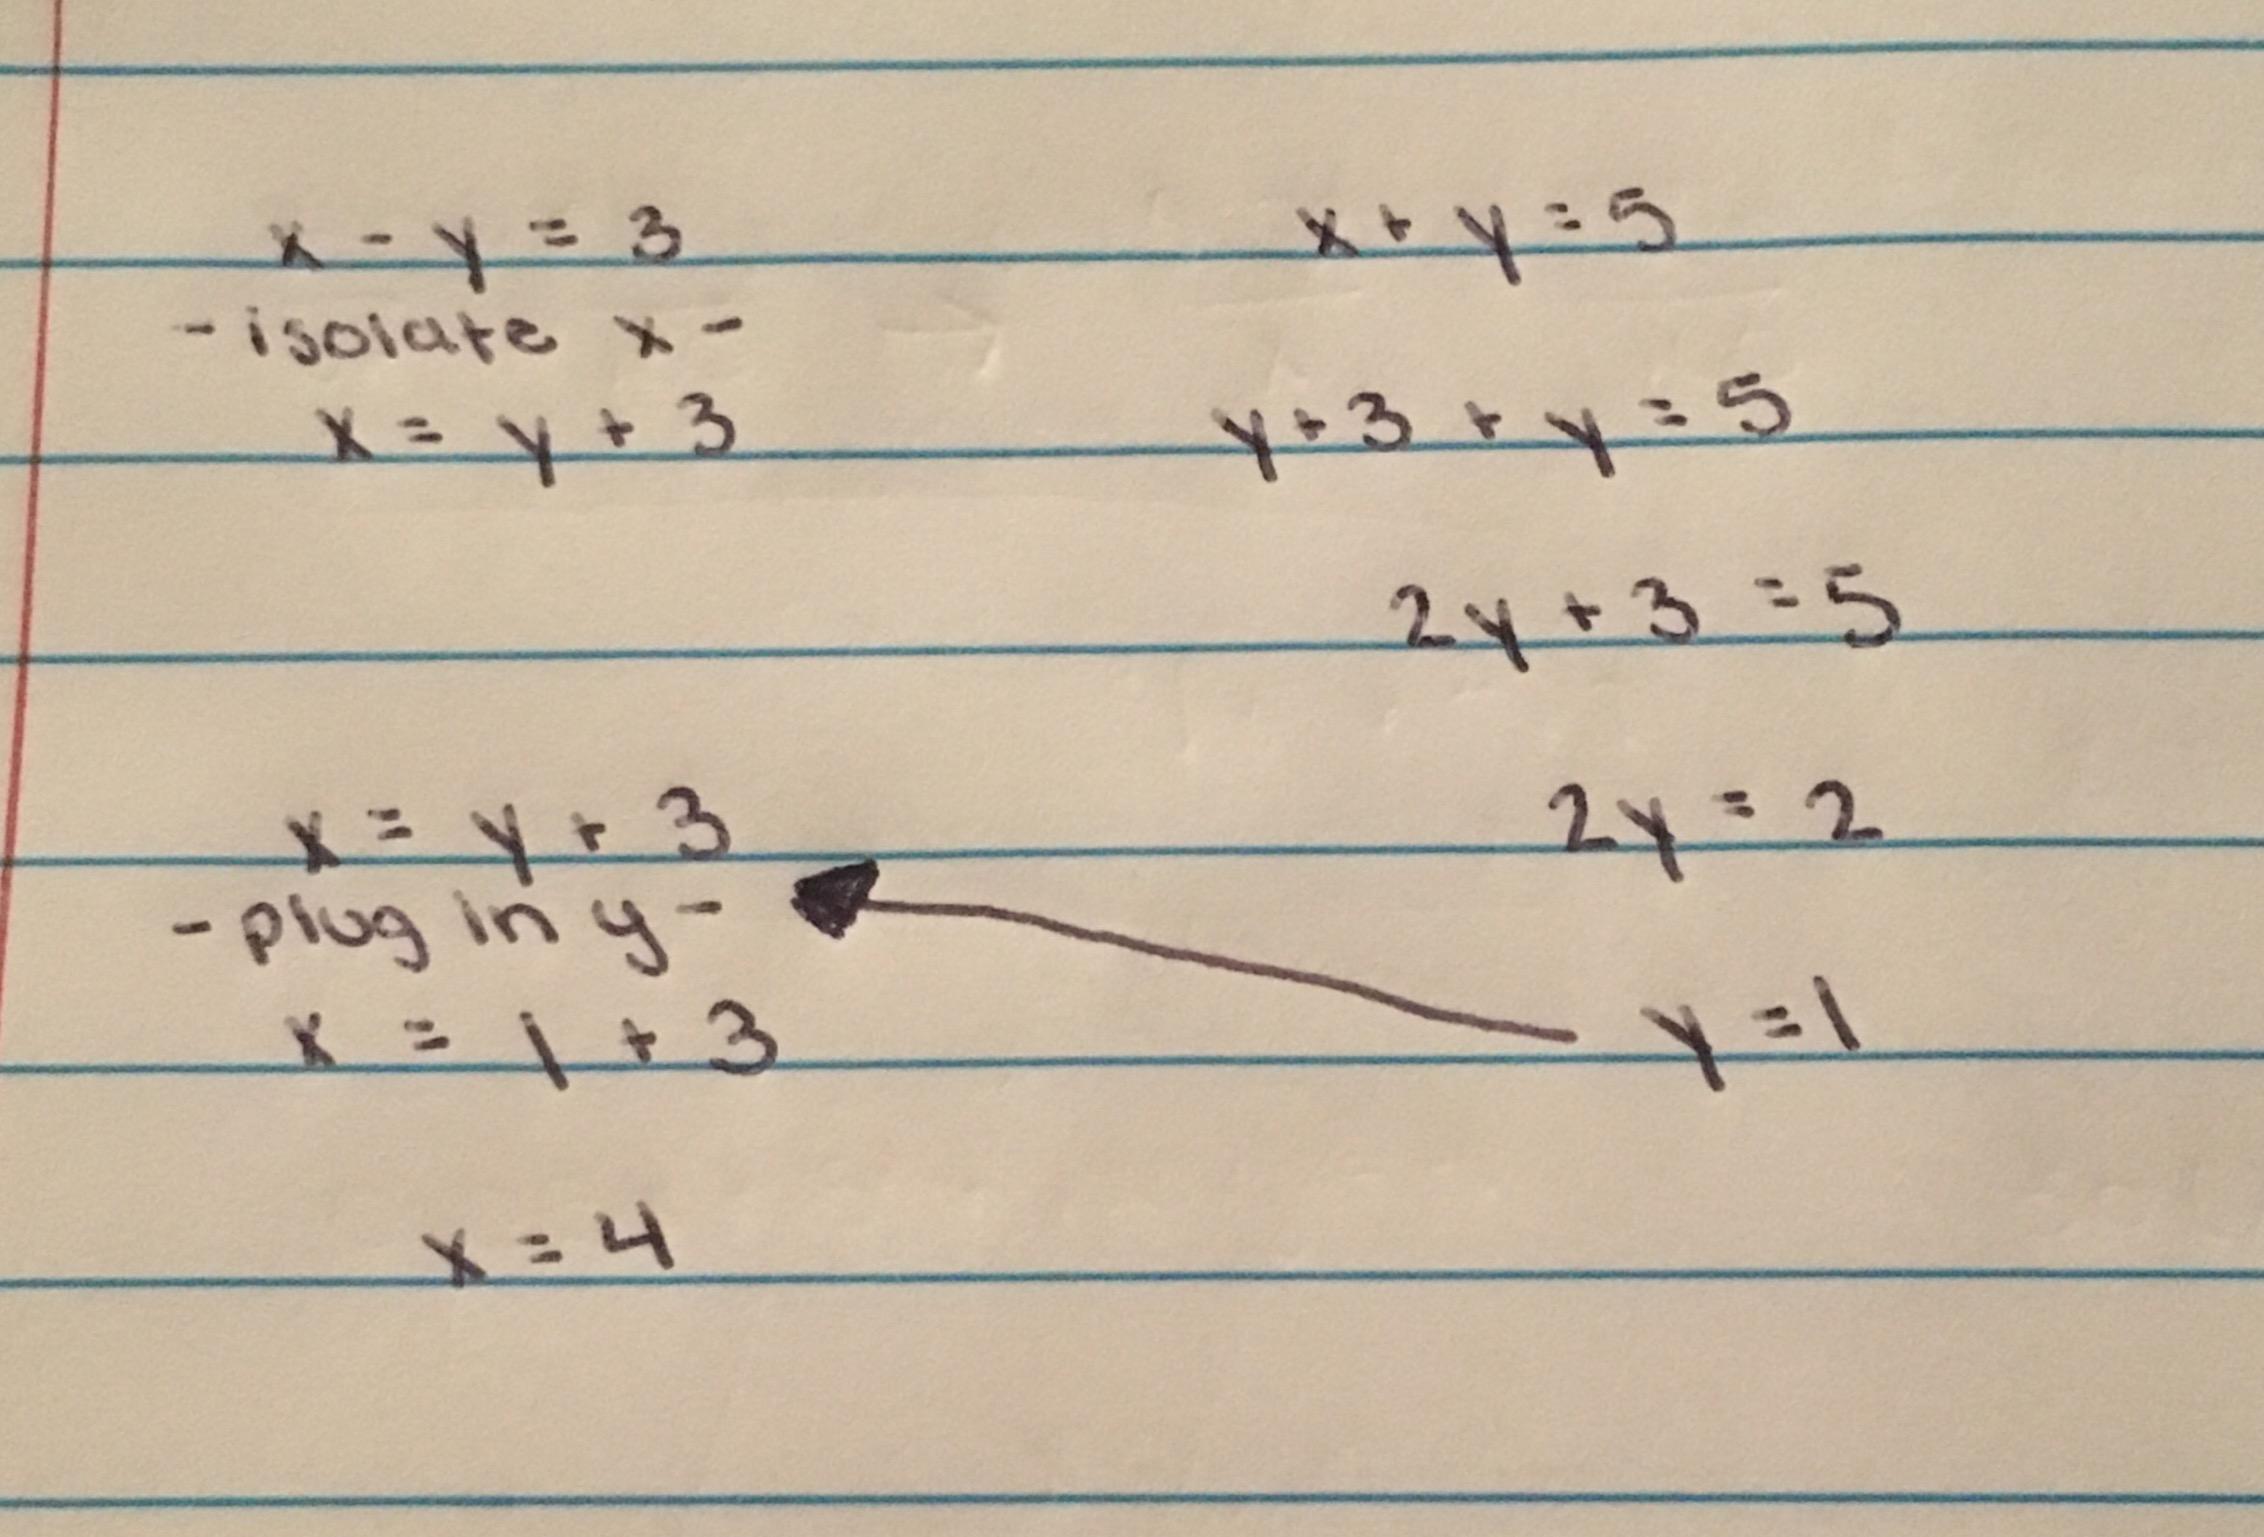 x - y = 3
- isolate x -
x = y + 3
x + y = 5
y + 3 + y = 5
2y + 3 = 5
2y = 2
y = 1
x = y + 3
- plug in y -
x = 1 + 3
x = 4